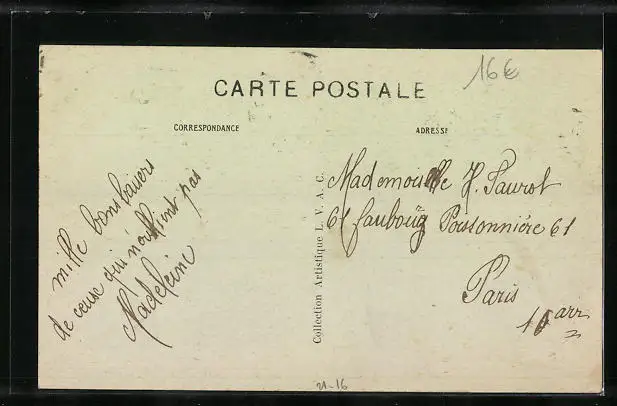 16€
CARTE POSTALE
CORRESPONDANCE
ADRESSE
mille bons baisers
de ceux qui n'oublient pas
Madeleine
Collection Artistique L. V. A. C.
Mademoiselle H. Paurol
61 fauboug Poissonnière 61
Paris
10 arr
21-16